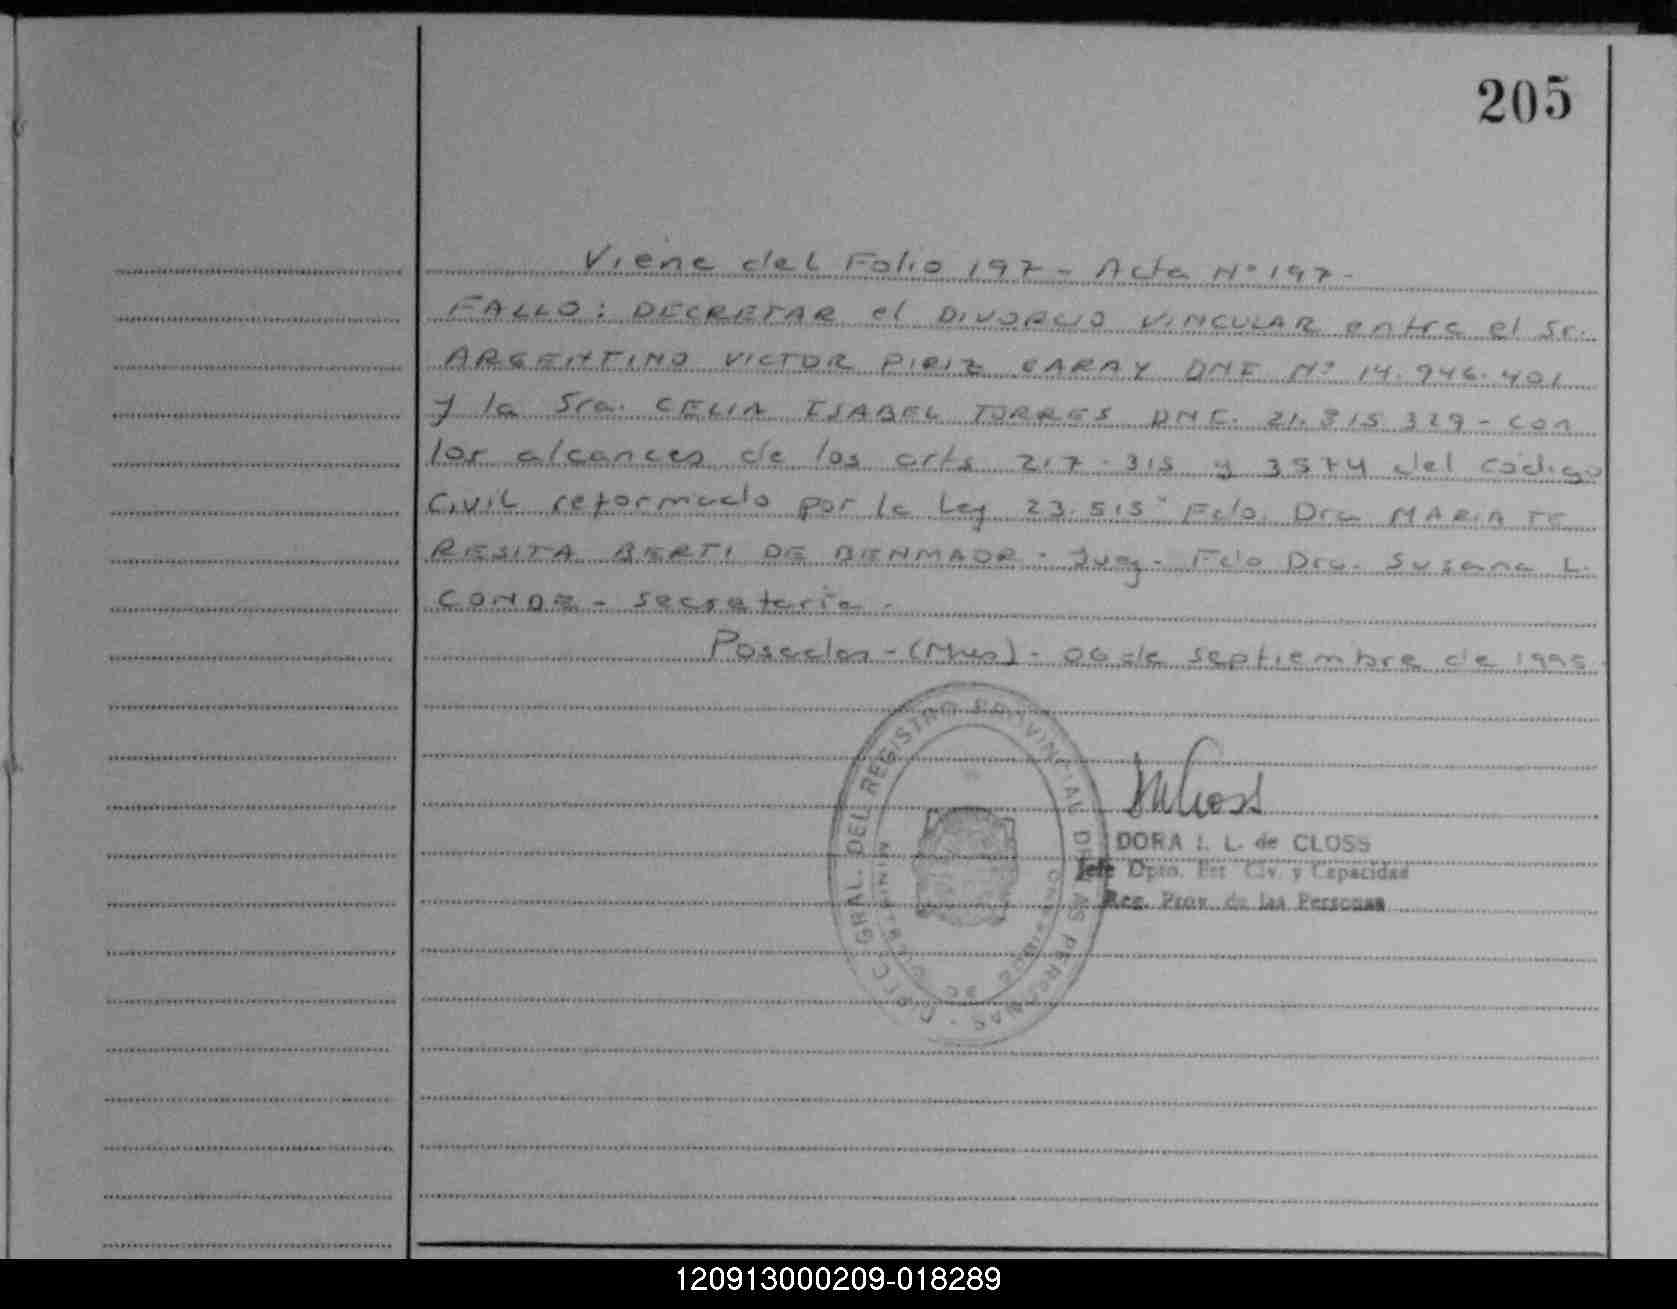 205
Viene del Folio 197 - Acta Nº 197 -
FALLO: DECRETAR el DIVORCIO VINCULAR entre el Sr.
ARGENTINO VICTOR PIRIZ GARAY DNI Nº 14.946.401
y la Sra. CELIA ISABEL TORRES DNI. 21.315.329 - con
los alcances de los arts 217 - 315 y 3574 del código
Civil reformado por la Ley 23.515" Fdo. Dra MARIA TE
RESITA BERTI DE BENMAOR - Juez - Fdo Dra. Susana L.
CONDE - Secretaria -
Posadas - (Mnes) - 06 de septiembre de 1995.
DIREC GRAL. DEL REGISTRO PROVINCIAL DE LAS PERSONAS
DORA I. L. de CLOSS
Jefe Dpto. Est. Civ. y Capacidad
Reg. Prov. de las Personas
120913000209-018289